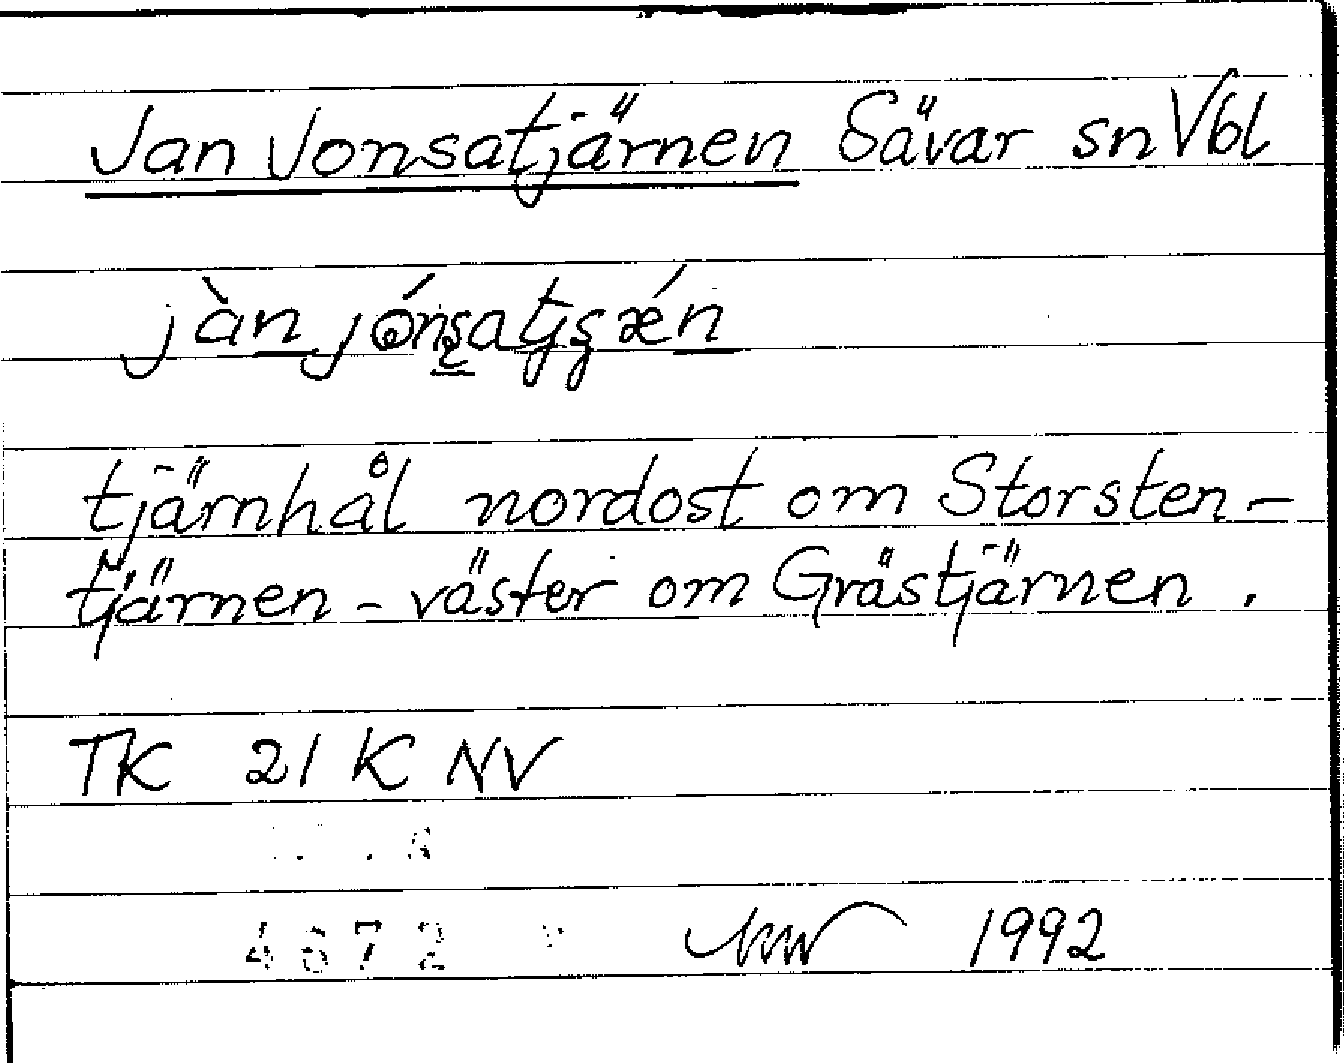 Jan Jonsatjärnen Sävar sn Vbl
tjärnhål nordost om Storsten-
tjärnen - väster om Gråstjärnen.
TK 21 K NV
4672 1992